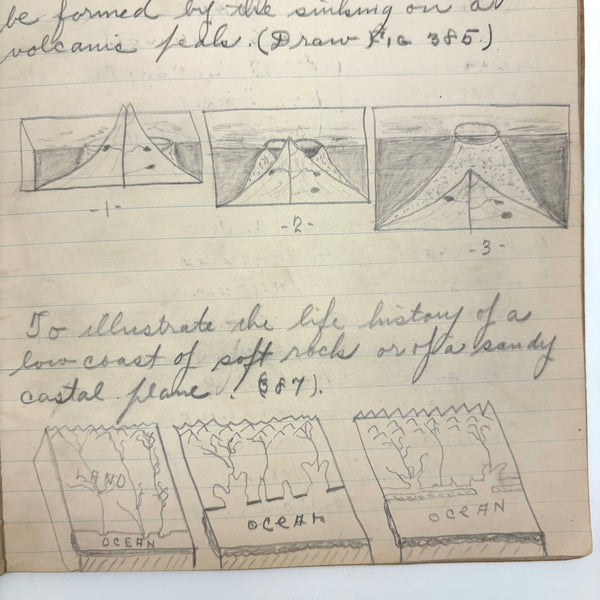 be formed by the sinking on a
volcanic peak. (Draw Fig 385.)
-1-
-2-
-3-
To illustrate the life history of a
low coast of soft rock or of a sandy
castal plane. (387).
LAND
OCEAN
OCEAN
OCEAN